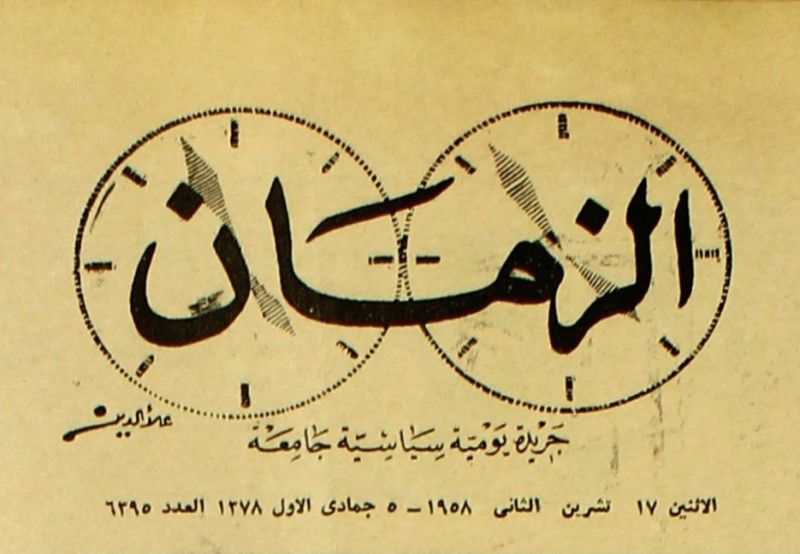 الزمان
علاءالدين
جريدة يومية سياسية جامعة
الاثنين ١٧ تشرين الثاني ١٩٥٨ – ٥ جمادى الاول ١٣٧٨ العدد ٦٣٩٥